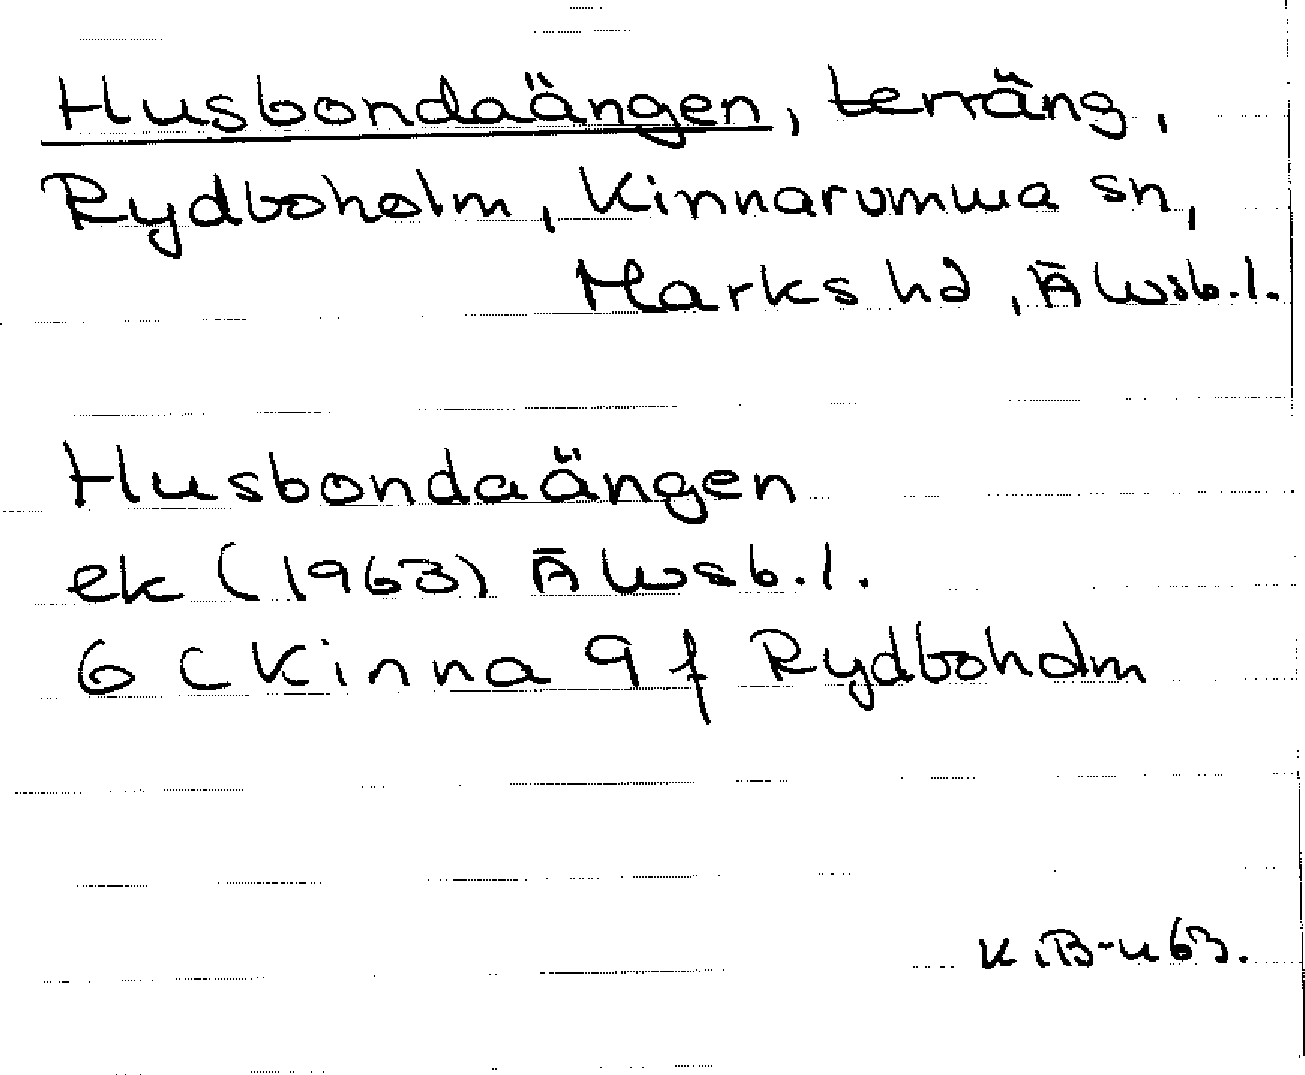 Husbondaängen, terräng,
Rydboholm, Kinnarumma sn,
Marks hd, Älvsb.l.
Husbondaängen
ek (1963) Älvsb.l.
6 C Kinna 9 f Rydboholm
K.B-n 63.